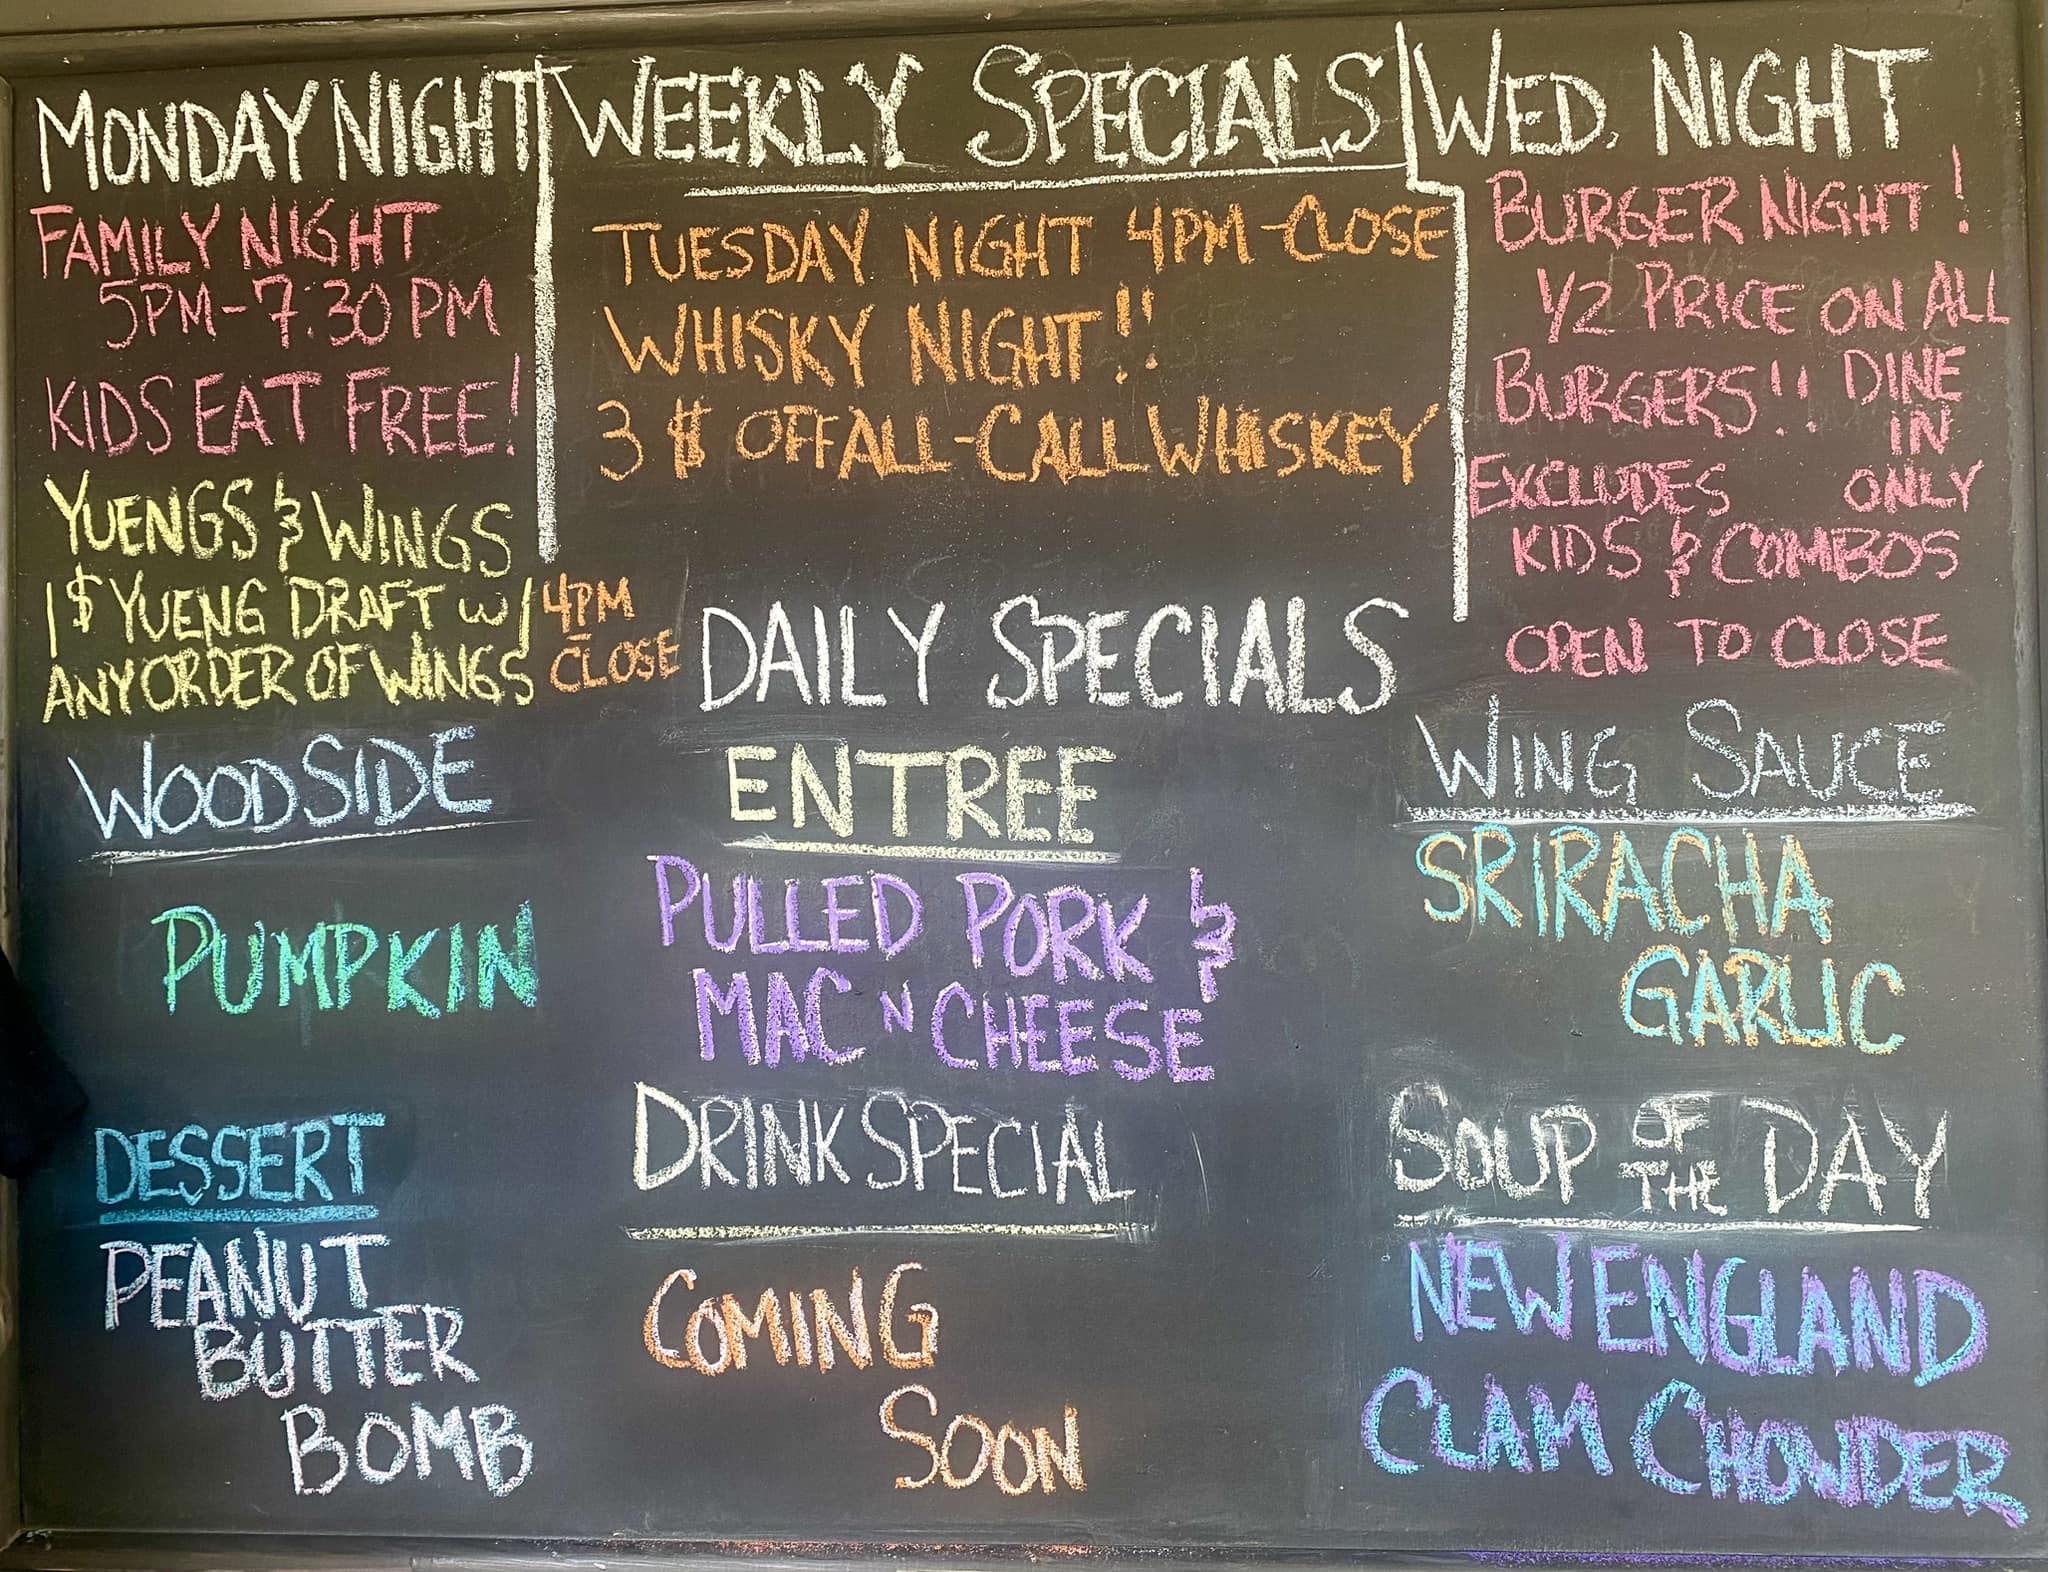 MONDAY NIGHT
FAMILY NIGHT
5PM-7:30 PM
KIDS EAT FREE!
YUENGS & WINGS
1$ YUENG DRAFT W/
ANY ORDER OF WINGS
4PM
-
CLOSE
WEEKLY SPECIALS
TUESDAY NIGHT 4PM-CLOSE
WHISKY NIGHT!!
3 $ OFF ALL-CALL WHISKEY
WED. NIGHT
BURGER NIGHT!
1/2 PRICE ON ALL
BURGERS!! DINE
IN
EXCLUDES ONLY
KIDS & COMBOS
OPEN TO CLOSE
DAILY SPECIALS
WOODSIDE
PUMPKIN
ENTREE
PULLED PORK &
MAC N CHEESE
WING SAUCE
SRIRACHA
GARLIC
DESSERT
PEANUT
BUTTER
BOMB
DRINK SPECIAL
COMING
SOON
SOUP OF THE DAY
NEW ENGLAND
CLAM CHOWDER